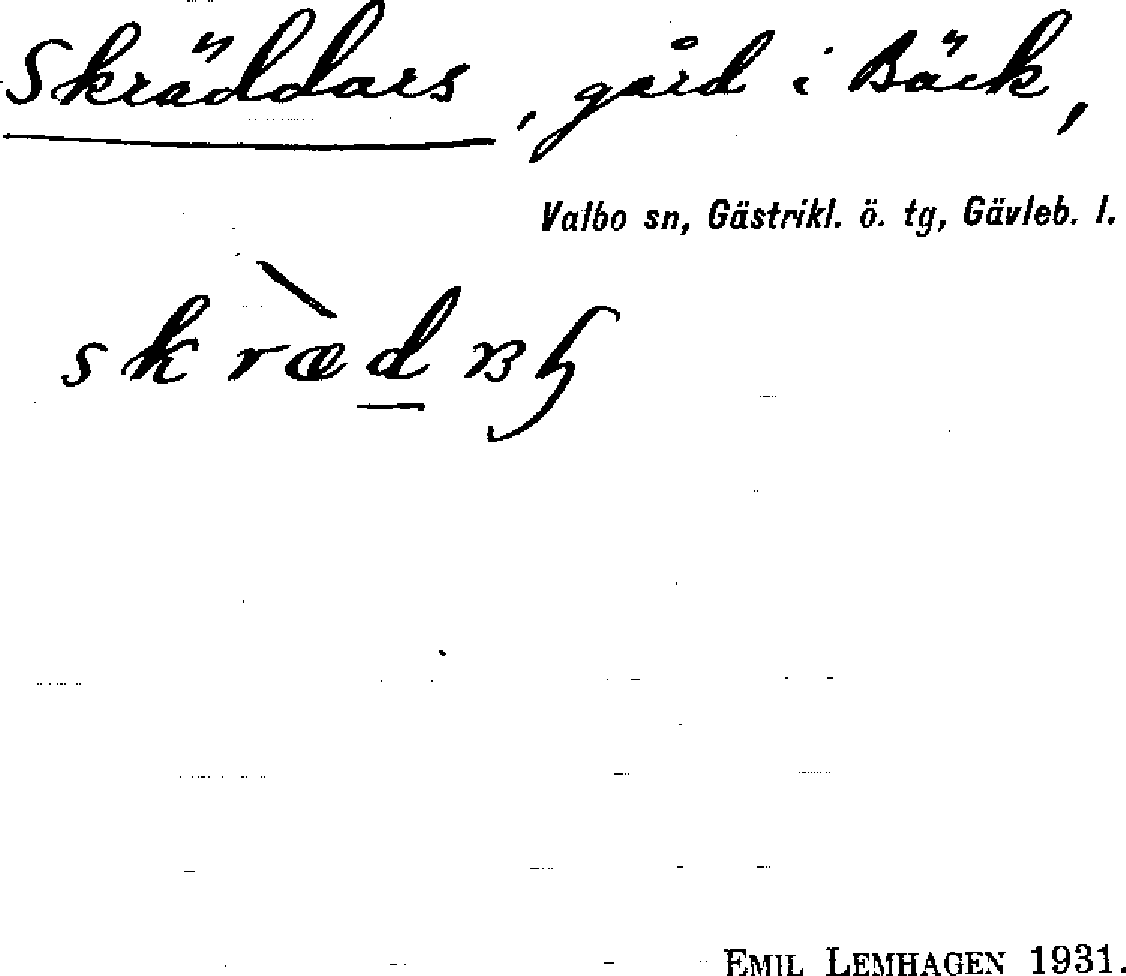 Skräddars, gård i Bäck,
Valbo sn, Gästrikl. ö. tg, Gävleb. l.
EMIL LEMHAGEN 1931.